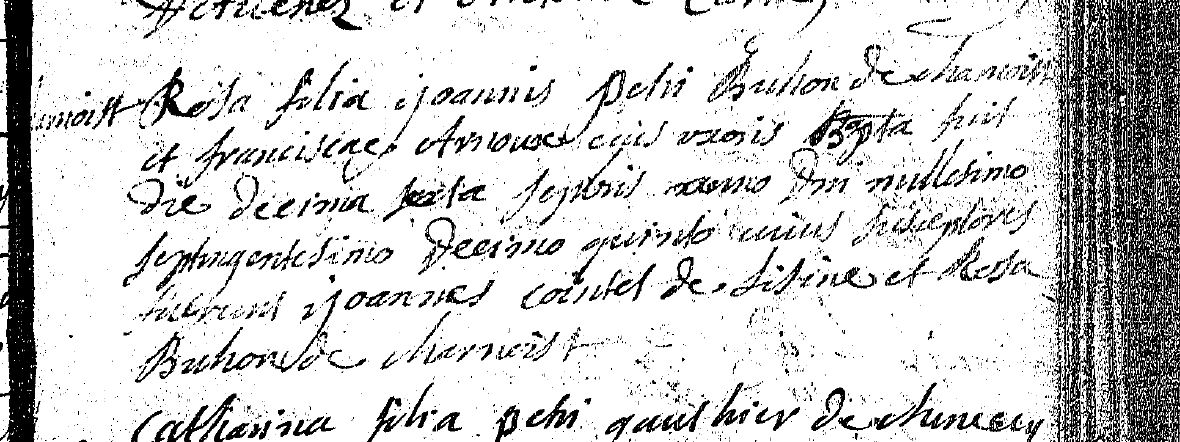 et
Rosa filia ijoannis petri Buhon de charnoist
charnoist
et franciscae Arnoux eius uxoris bzpta fuit
die decima sexta septbris anno dni millesimo
septingentesimo decimo quinto cuius susceptores
fuerunt ijoannes cointet de Lisine et Rosa
Buhon de charnoist
Catharina filia petri gaulthier de